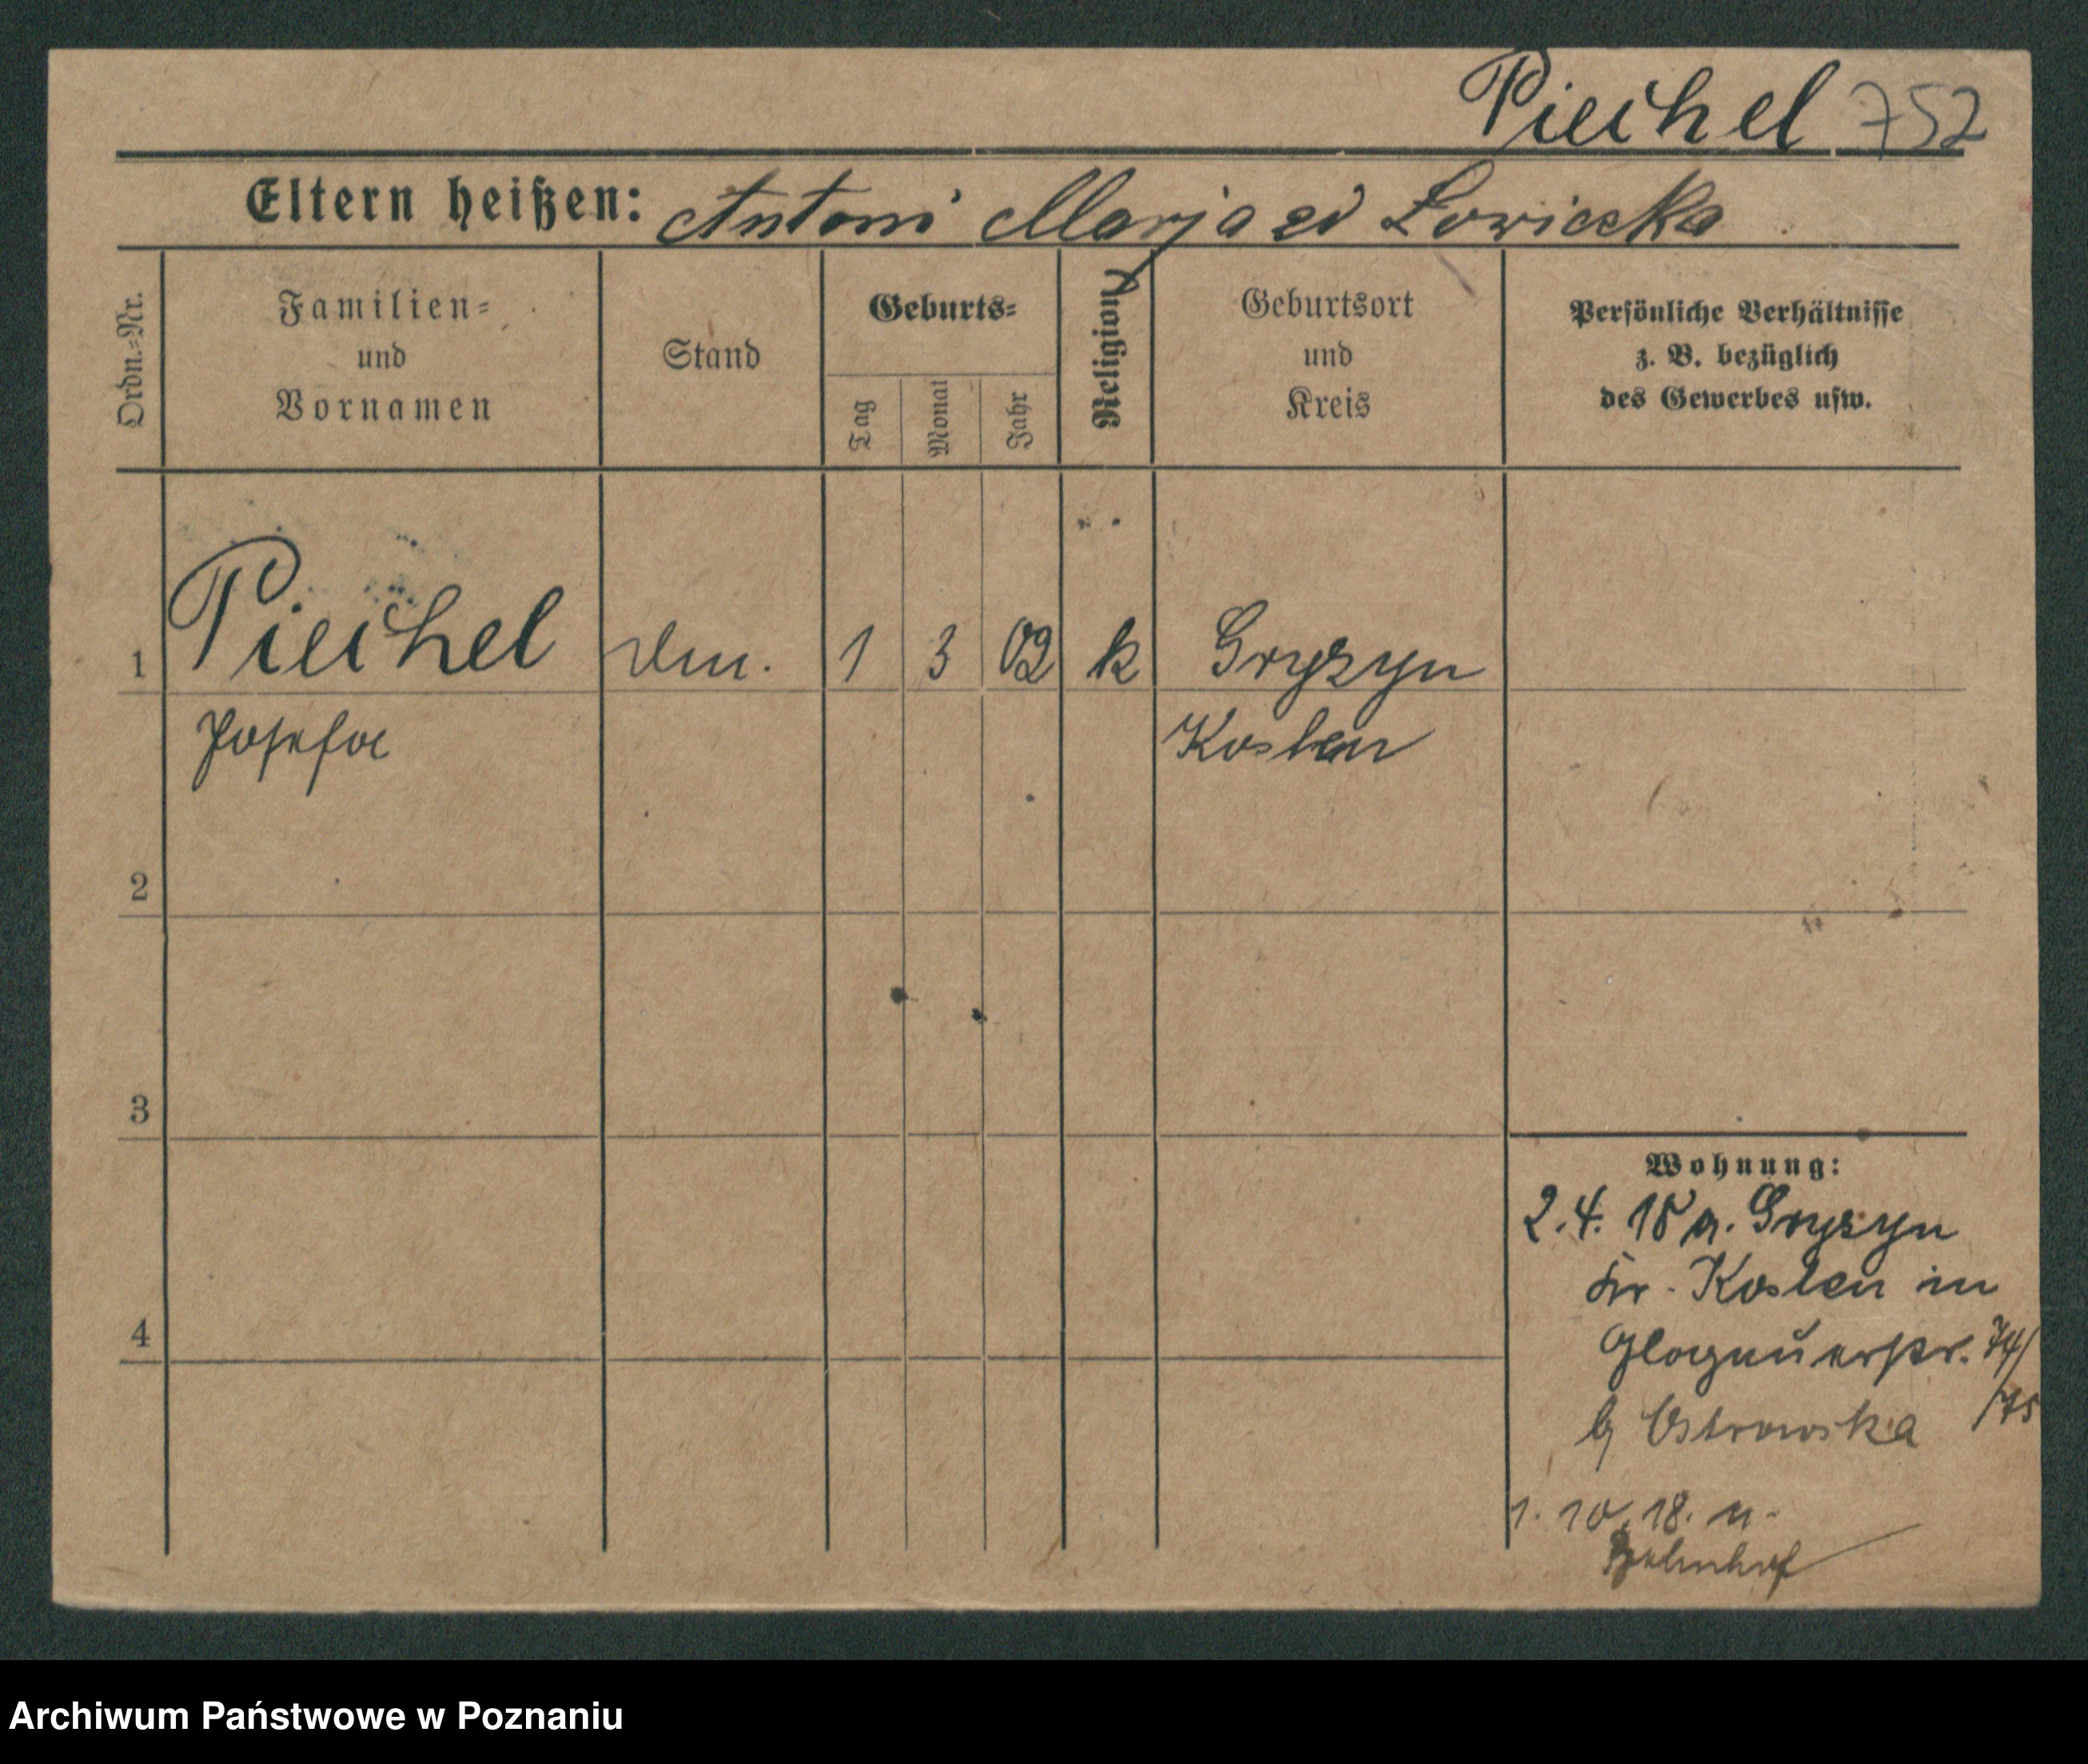 Piechel 752
Eltern heißen: Antoni Marja zd Łowicka
Ordn.=Nr.
Familien=
und
Vornamen
Stand
Geburts=
Tag
Monat
Jahr
Religion
Geburtsort
und
Kreis
Persönliche Verhältnisse
z. B. bezüglich
des Gewerbes usw.
1 Piechel 1 3 02 k Gryzyn
Josefa Kosten
2
3
4
Wohnung:
2.4. 18 a. Gryzyn
Kr. Kosten in
Glogauerstr. 74/
/75
b Ostrowska
1. 10. 18. n.
Bahnhof
Archiwum Państwowe w Poznaniu